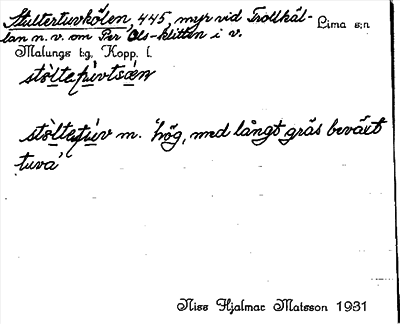 Stultertuvkölen, 445, myr vid Trollkäl- Lima s:n
lan n. v. om Per Ols-klitten i v.
Malungs t:g, Kopp. l.
stòltepívtsǽn
stòltepív m. 'hög, med långt gräs beväxt
tuva'
Nils Hjalmar Matsson 1931